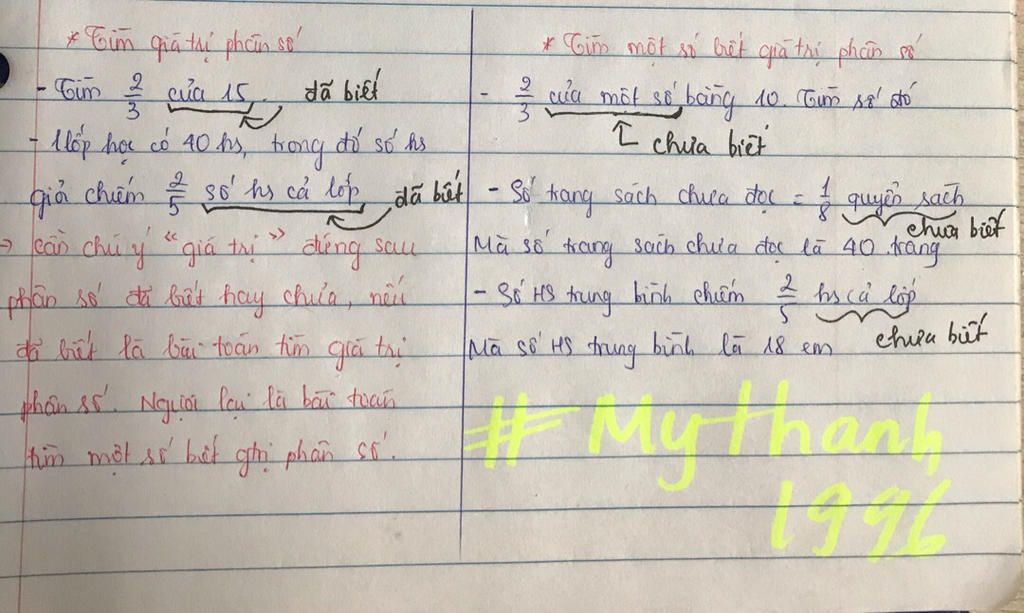 * Tìm giá trị phân số
- Tìm 2/3 của 15. đã biết
- 1 lớp học có 40 hs, trong đó số hs
giỏi chiếm 2/5 số hs cả lớp đã biết
=> cần chú ý "giá trị" đứng sau
phân số đã biết hay chưa, nếu
đã biết là bài toán tìm giá trị
phân số. Ngược lại là bài toán
tìm một số biết gtrị phân số.
* Tìm một số biết giá trị phân số
- 2/3 của một số bằng 10. Tìm số đó
chưa biết
- Số trang sách chưa đọc = 1/8 quyển sách
chưa biết
Mà số trang sách chưa đọc là 40 trang
- Số HS trung bình chiếm 2/5 hs cả lớp
chưa biết
Mà số HS trung bình là 18 em
# Mythanh
1996